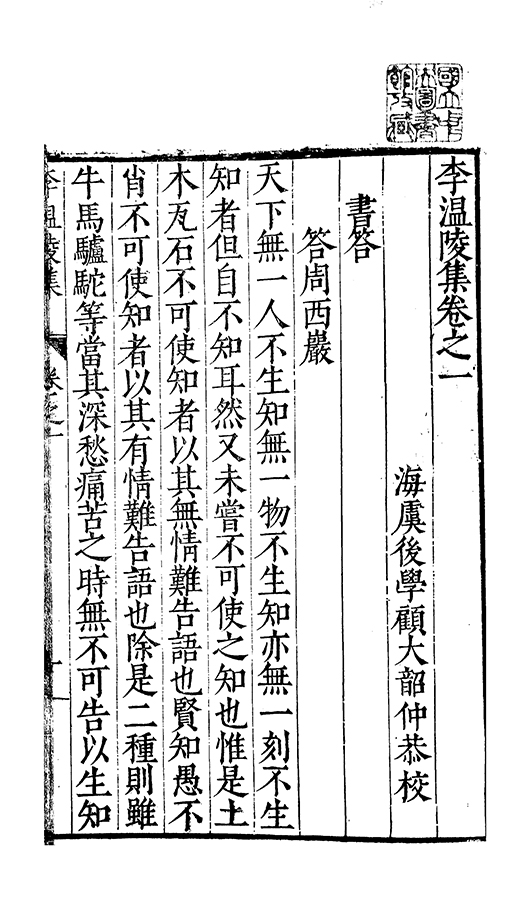 國立中
央圖書
館收藏
李温陵集卷之一
海虞後學顧大韶仲恭校
書答
答周西巖
天下無一人不生知無一物不生知亦無一刻不生
知者但自不知耳然又未嘗不可使之知也惟是土
木瓦石不可使知者以其無情難告語也賢知愚不
肖不可使知者以其有情難告語也除是二種則雖
牛馬驢駝等當其深愁痛苦之時無不可告以生知
李温陵集
卷之一
一